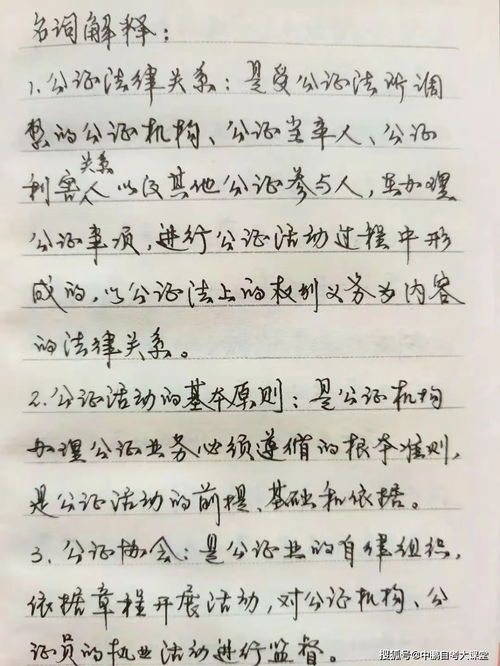 名词解释：
1.公证法律关系：是受公证法所调
整的公证机构、公证当事人、公证
利害关系人以及其他公证参与人，在办理
公证事项，进行公证活动过程中形
成的，以公证法上的权利义务为内容
的法律关系。
2.公证活动的基本原则：是公证机构
办理公证业务必须遵循的根本准则，
是公证活动的前提、基础和依据。
3.公证协会：是公证业的自律组织，
依据章程开展活动，对公证机构、公
证员的执业活动进行监督。
搜狐号@中鹏自考大课堂